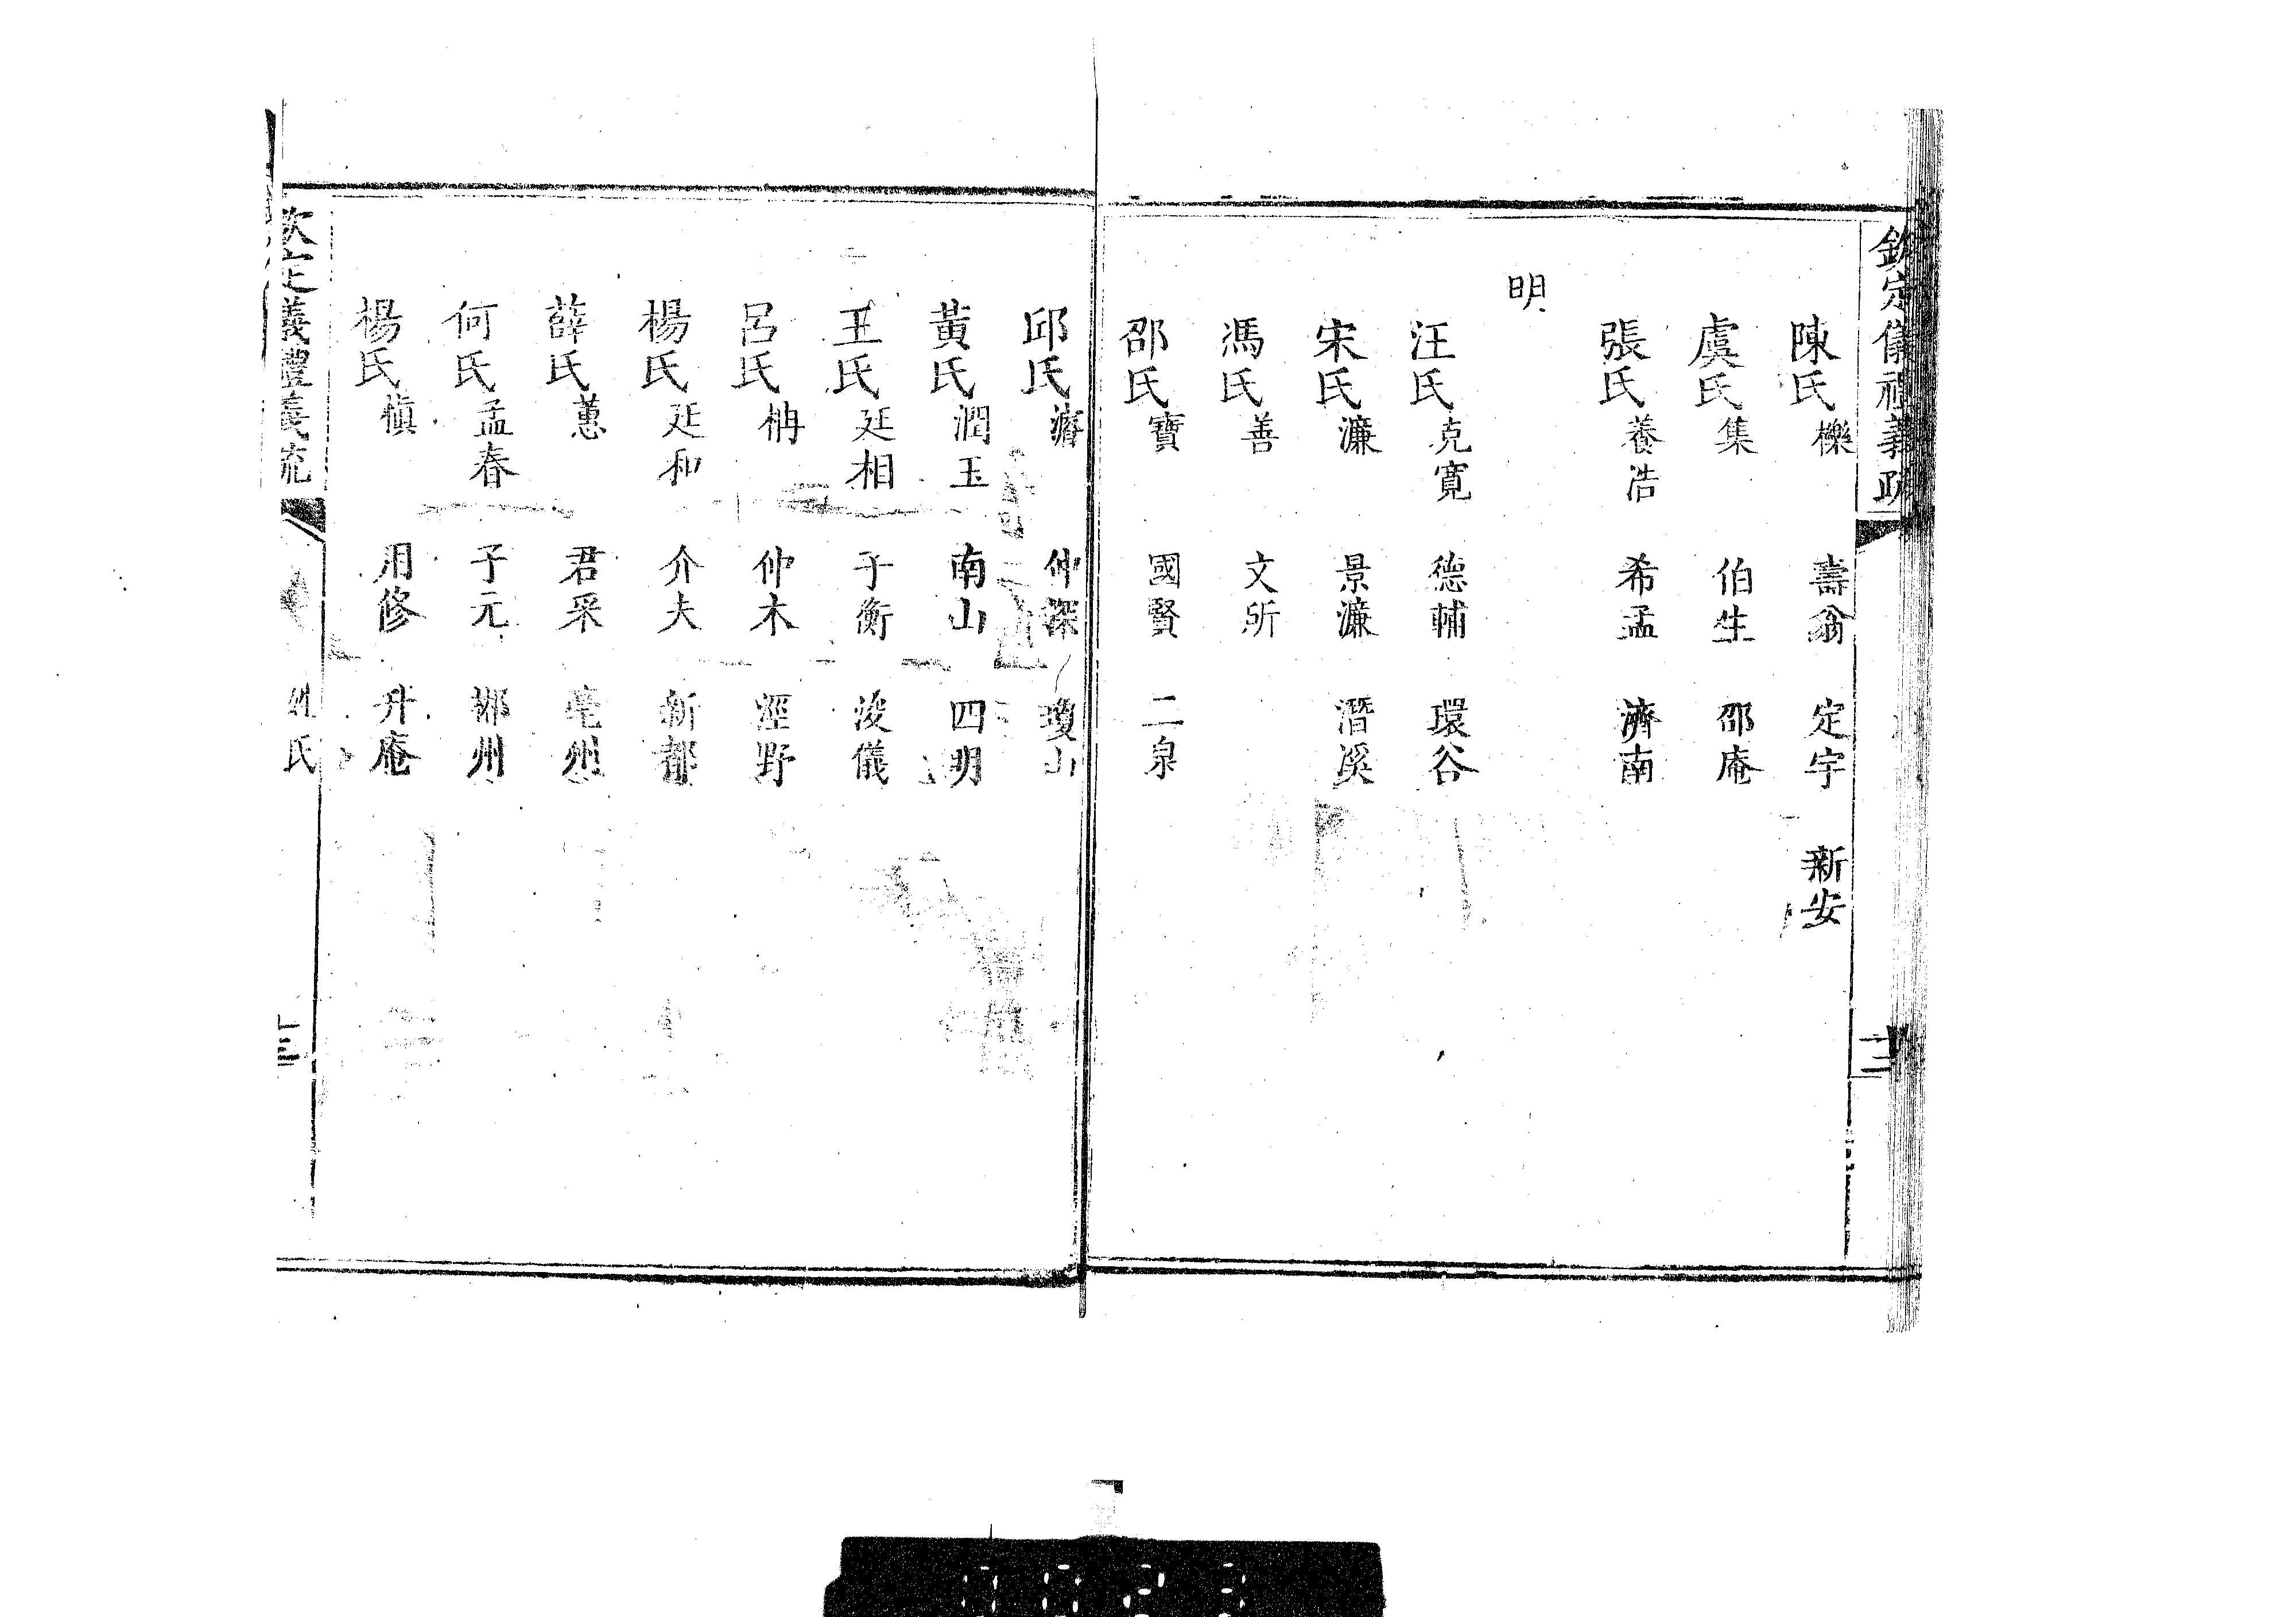 欽定儀禮義疏 十二
陳氏櫟 壽翁 定宇 新安
虞氏集 伯生 邵庵
張氏養浩 希孟 濟南
明
汪氏克寬 德輔 環谷
宋氏濂 景濂 潛溪
馮氏善 文所
邵氏寶 國賢 二泉
邱氏濬 仲深 瓊山
黃氏潤玉 南山 四明
王氏廷相 子衡 浚儀
呂氏柟 仲木 涇野
楊氏廷和 介夫 新都
薛氏蕙 君采 亳州
何氏孟春 子元 郴州
楊氏慎 用修 升庵
欽定儀禮義疏 姓氏